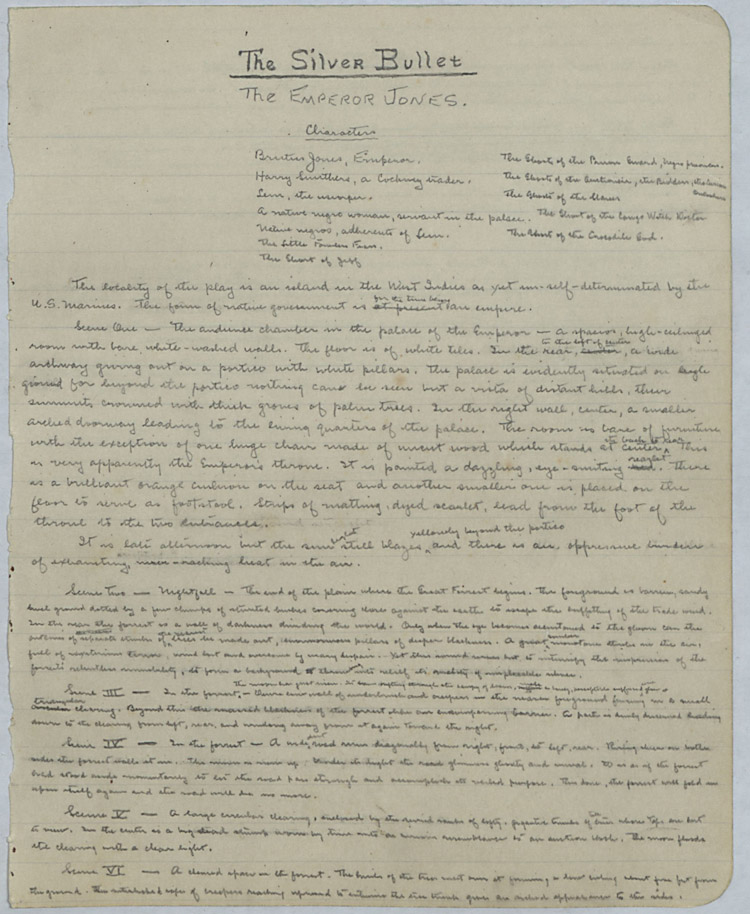 The Silver Bullet
The Emperor Jones.
Characters
Brutus Jones, Emperor.
Harry Smithers, a Cockney trader.
Lem, the usurper.
A native negro woman, servant in the palace.
Native negros, adherents of Lem.
The Little Formless Fears.
The Ghost of Jeff
The Ghosts of the Prison Guard, negro prisoners.
The Ghosts of the Auctioneer, the Bidders, the
The Ghosts of the Slaves
The Ghost of the Congo Witch Doctor
The Ghost of the Crocodile God.
The locality of the play is an island in the West Indies as yet un-self-determinated by the
U.S. Marines. The form of native government is at present for the time being an empire.
Scene One — The audience chamber in the palace of the Emperor — a spacious, high-ceilinged
room with bare, white-washed walls. The floor is of white tiles. In the rear, to the left of center, a wide
archway giving out on a portico with white pillars. The palace is evidently situated on high
ground for beyond the portico nothing can be seen but a vista of distant hills, their
summits crowned with thick groves of palm trees. In the right wall, center, a smaller
arched doorway leading to the living quarters of the palace. The room is bare of furniture
with the exception of one huge chair made of uncut wood which stands at center, its back to rear. This
is very apparently the Emperor's throne. It is painted a dazzling, eye-smiting scarlet. There
is a brilliant orange cushion on the seat and another smaller one is placed on the
floor to serve as footstool. Strips of matting, dyed scarlet, lead from the foot of the
throne to the two entrances.
It is late afternoon but the sun still blazes yellowly beyond the portico and there is an oppressive burden
of exhausting heat in the air.
Scene Two — Nightfall — The end of the plain where the Great Forest begins. The foreground is barren, sandy
level ground dotted by a few clumps of stunted bushes cowering close against the earth to escape the buffeting of the trade wind.
In the rear the forest is a wall of darkness dividing the world. Only when the eye becomes accustomed to the gloom can the
outlines of separate trunks of the nearest trees be made out, enormous pillars of deeper blackness. A somber monotone in the air,
Yet this sound serves but to intensify the impression of the
forest's relentless immobility, to form a background into relief its
Scene III — In the forest,
triangular clearing. Beyond this the massed blackness of the forest like an encompassing barrier. A path is dimly discerned leading
down to the clearing from left, rear, and winding away from it again toward the right.
Scene IV — In the forest — A wide dirt road runs diagonally from right, front, to left, rear. Rising sheer on both
sides the forest walls it in. The moon is now up. Under its light the road glimmers ghastly and unreal. It is as if the forest
had stood aside momentarily to let the road pass through and accomplish its veiled purpose. This done, the forest will fold in
upon itself again and the road will be no more.
Scene V — A large circular clearing, enclosed by the serried ranks of lofty, gigantic trunks of tall trees whose tops are lost
to view. In the center is a big dead stump worn by time into a curious resemblance to an auction block. The moon floods
the clearing with a clear light.
Scene VI — A cleared space in the forest. The limbs of the trees meet over it forming a low ceiling about five feet from
the ground. The interlocked ropes of creepers reaching upward to entwine the tree trunks give an arched appearance to the sides.